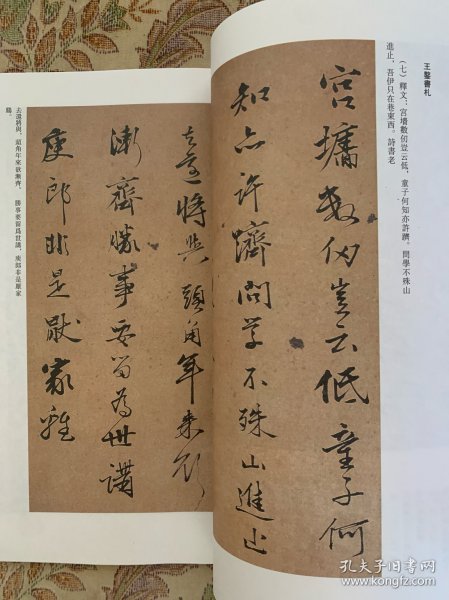 王鏊書札
(七) 釋文：宮墻數仞豈云低，童子何知亦許躋。問學不殊山
進止，吾伊只在巷東西。詩書老
宮墻數仞豈云低童子何
知亦許躋問学不殊山進止
去還將與頭角年来欲
漸齊勝事要留為世講
庾郎非是厭家雞
去還將與，頭角年來欲漸齊。勝事要留爲世講，庾郎非是厭家
鷄。
孔夫子旧书网
www.kongfz.com